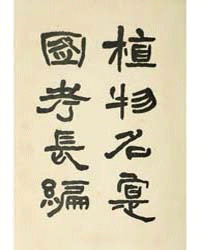 植物名寔
圖考長編